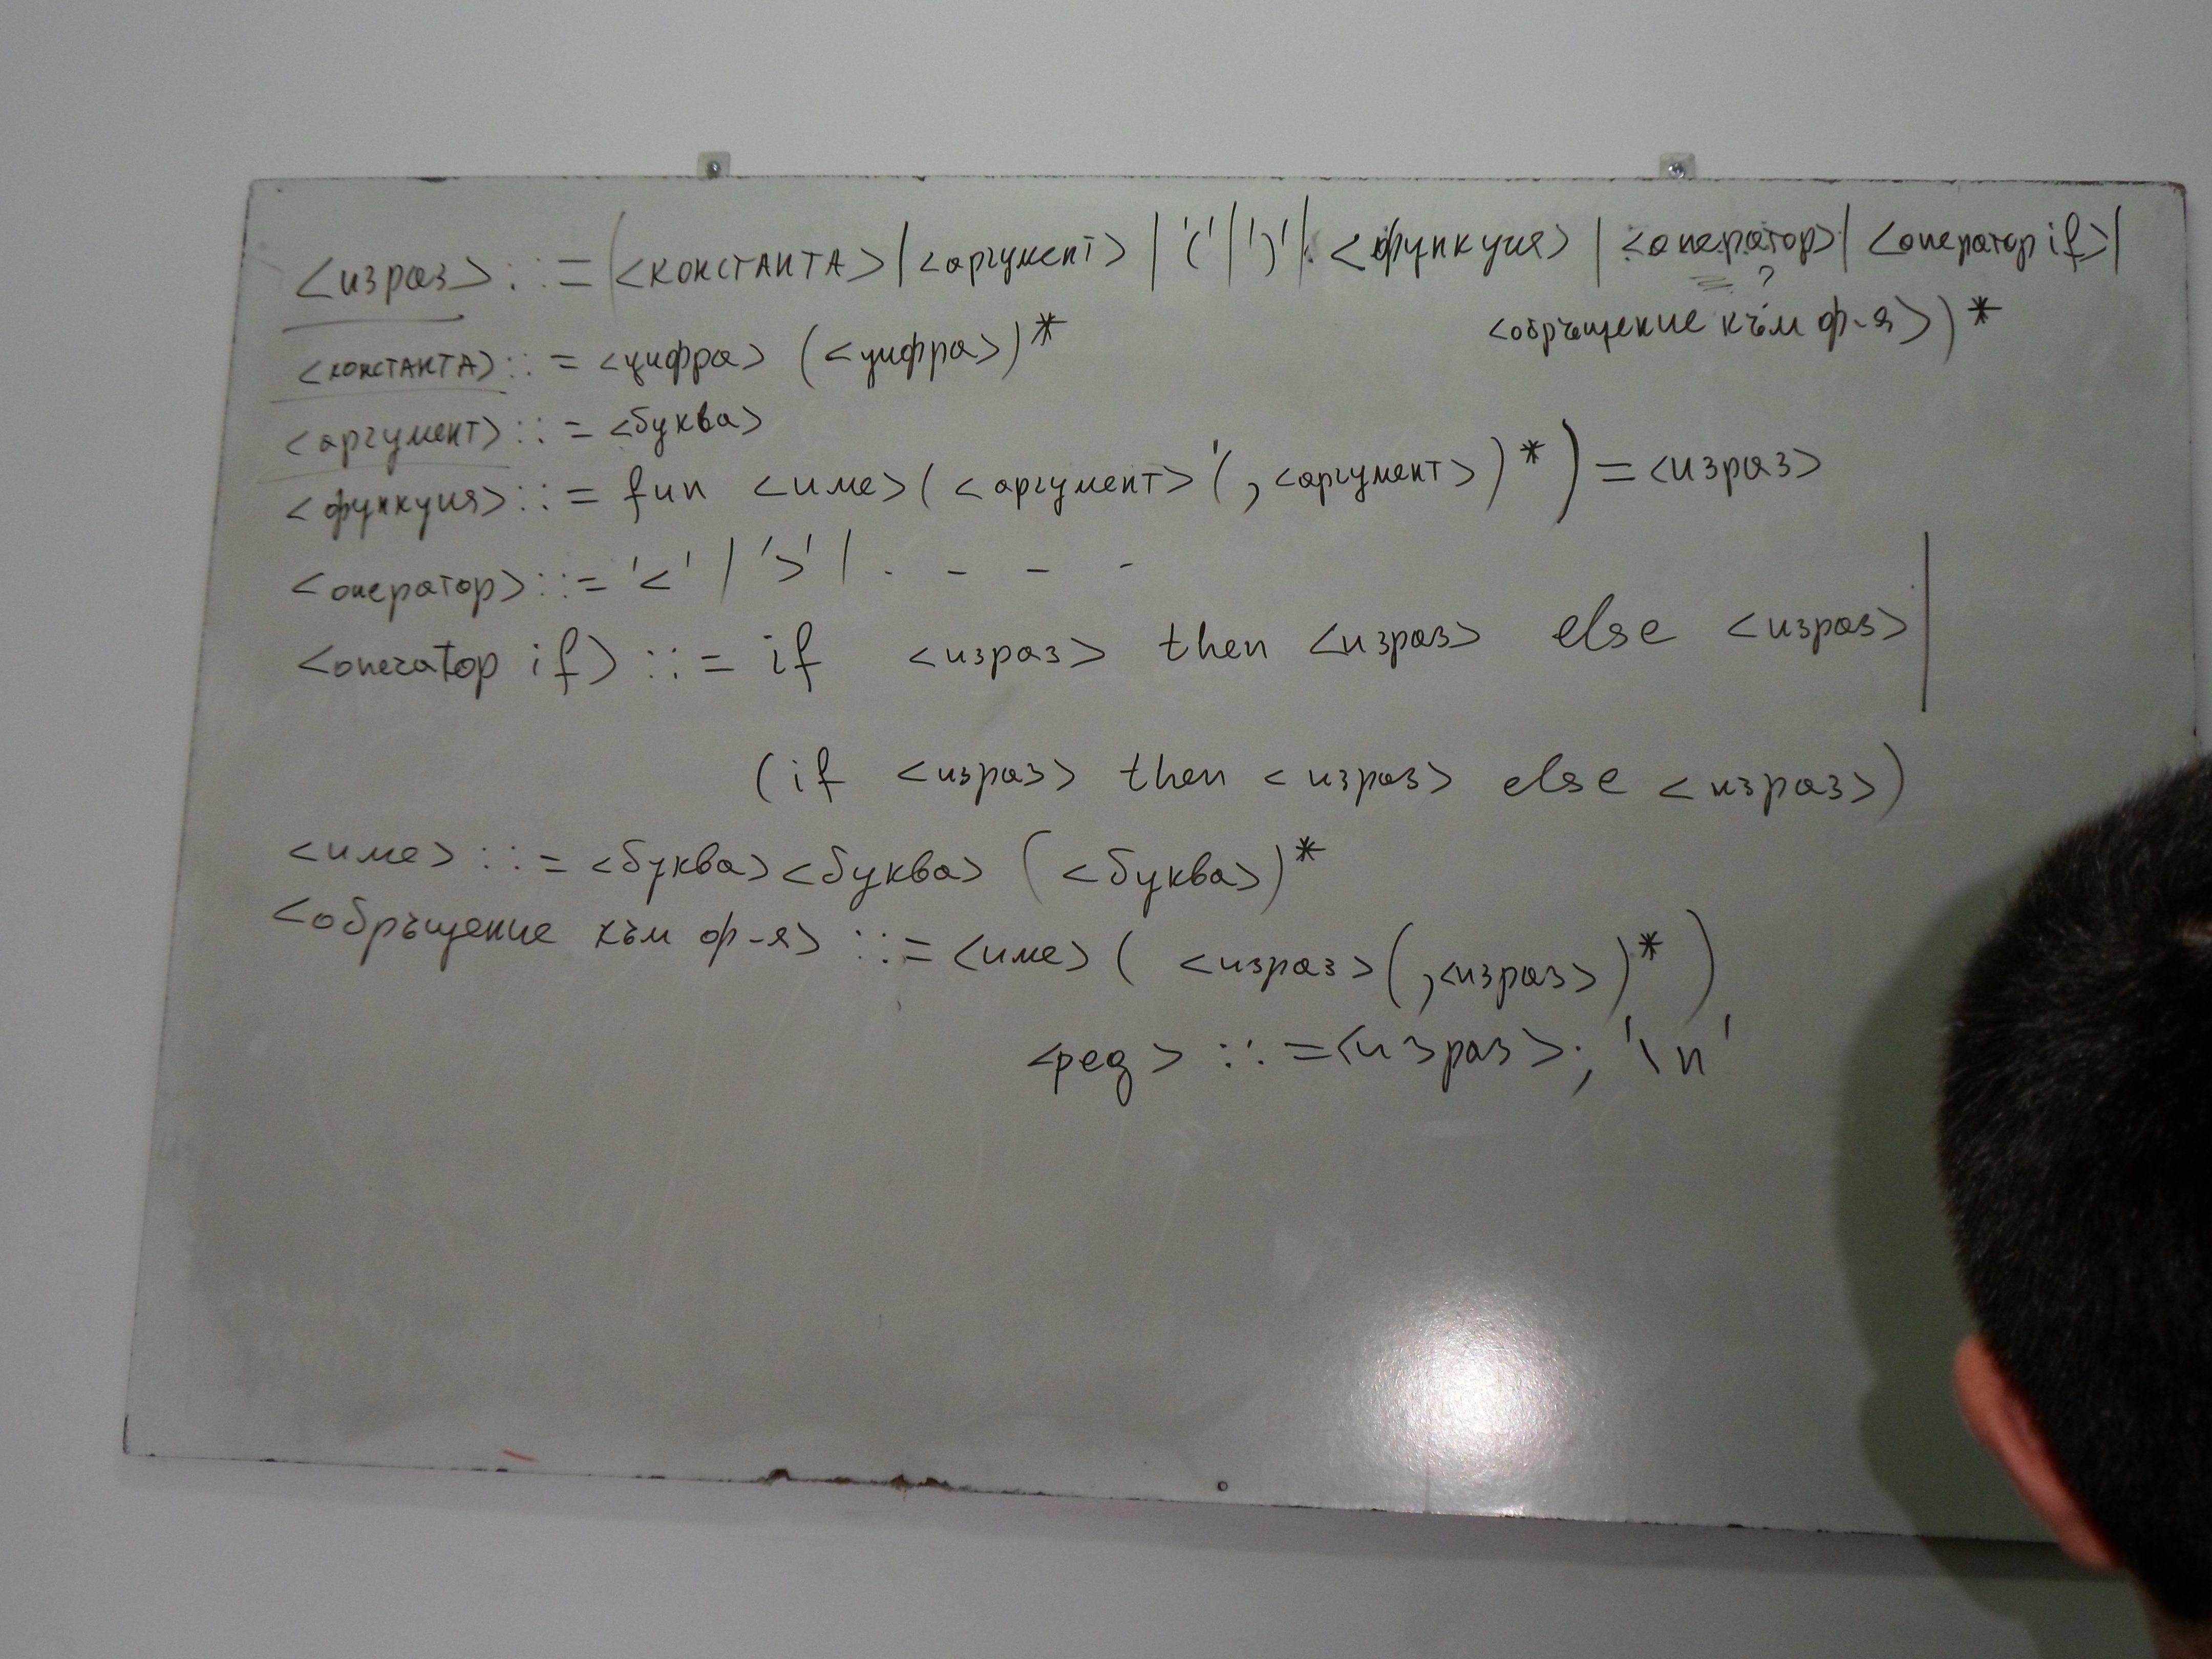 <израз> ::= (<константа>|<аргумент> | '(' | ')' | <функция> | <оператор> | <оператор if>|
?
<обръщение към ф-я>)*
<константа> ::= <цифра> (<цифра>)*
<аргумент> ::= <буква>
<функция> ::= fun <име> ( <аргумент> '(, <аргумент>)* ) = <израз>
<оператор> ::= '<' | '>' | . - - -
<оператор if> ::= if <израз> then <израз> else <израз> |
(if <израз> then <израз> else <израз>)
<име> ::= <буква><буква> (<буква>)*
<обръщение към ф-я> ::= <име> ( <израз>(,<израз>)* )
<ред> ::= <израз>; '\n'